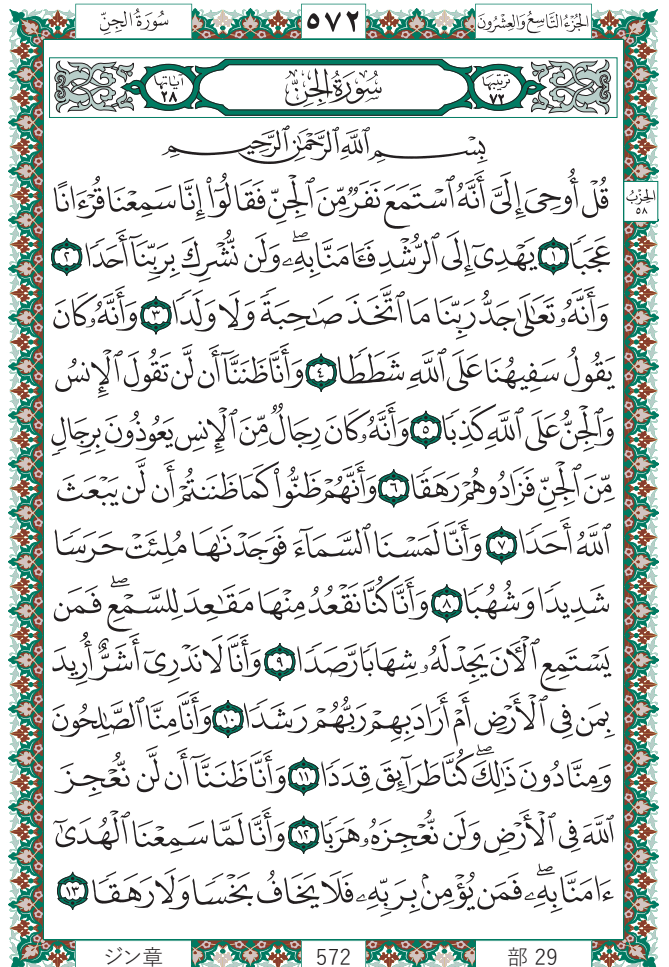 الجُزْءُ التَّاسِعُ وَالعِشْرُونَ ٥٧٢ سُورَةُ الجِنِّ
تَرْتِيبُهَا ٧٢ سُورَةُ الجِنِّ آيَاتُهَا ٢٨
بِسْمِ ٱللَّهِ ٱلرَّحْمَٰنِ ٱلرَّحِيمِ
قُلْ أُوحِىَ إِلَىَّ أَنَّهُ ٱسْتَمَعَ نَفَرٌ مِّنَ ٱلْجِنِّ فَقَالُوٓا۟ إِنَّا سَمِعْنَا قُرْءَانًا
الحِزْبُ ٥٨
عَجَبًا ١ يَهْدِىٓ إِلَى ٱلرُّشْدِ فَـَٔامَنَّا بِهِۦۖ وَلَن نُّشْرِكَ بِرَبِّنَآ أَحَدًا ٢
وَأَنَّهُۥ تَعَٰلَىٰ جَدُّ رَبِّنَا مَا ٱتَّخَذَ صَٰحِبَةً وَلَا وَلَدًا ٣ وَأَنَّهُۥ كَانَ
يَقُولُ سَفِيهُنَا عَلَى ٱللَّهِ شَطَطًا ٤ وَأَنَّا ظَنَنَّآ أَن لَّن تَقُولَ ٱلْإِنسُ
وَٱلْجِنُّ عَلَى ٱللَّهِ كَذِبًا ٥ وَأَنَّهُۥ كَانَ رِجَالٌ مِّنَ ٱلْإِنسِ يَعُوذُونَ بِرِجَالٍ
مِّنَ ٱلْجِنِّ فَزَادُوهُمْ رَهَقًا ٦ وَأَنَّهُمْ ظَنُّوا۟ كَمَا ظَنَنتُمْ أَن لَّن يَبْعَثَ
ٱللَّهُ أَحَدًا ٧ وَأَنَّا لَمَسْنَا ٱلسَّمَآءَ فَوَجَدْنَٰهَا مُلِئَتْ حَرَسًا
شَدِيدًا وَشُهُبًا ٨ وَأَنَّا كُنَّا نَقْعُدُ مِنْهَا مَقَٰعِدَ لِلسَّمْعِۖ فَمَن
يَسْتَمِعِ ٱلْـَٔانَ يَجِدْ لَهُۥ شِهَابًا رَّصَدًا ٩ وَأَنَّا لَا نَدْرِىٓ أَشَرٌّ أُرِيدَ
بِمَن فِى ٱلْأَرْضِ أَمْ أَرَادَ بِهِمْ رَبُّهُمْ رَشَدًا ١٠ وَأَنَّا مِنَّا ٱلصَّٰلِحُونَ
وَمِنَّا دُونَ ذَٰلِكَۖ كُنَّا طَرَآئِقَ قِدَدًا ١١ وَأَنَّا ظَنَنَّآ أَن لَّن نُّعْجِزَ
ٱللَّهَ فِى ٱلْأَرْضِ وَلَن نُّعْجِزَهُۥ هَرَبًا ١٢ وَأَنَّا لَمَّا سَمِعْنَا ٱلْهُدَىٰٓ
ءَامَنَّا بِهِۦۖ فَمَن يُؤْمِنۢ بِرَبِّهِۦ فَلَا يَخَافُ بَخْسًا وَلَا رَهَقًا ١٣
ジン章 572 部 29